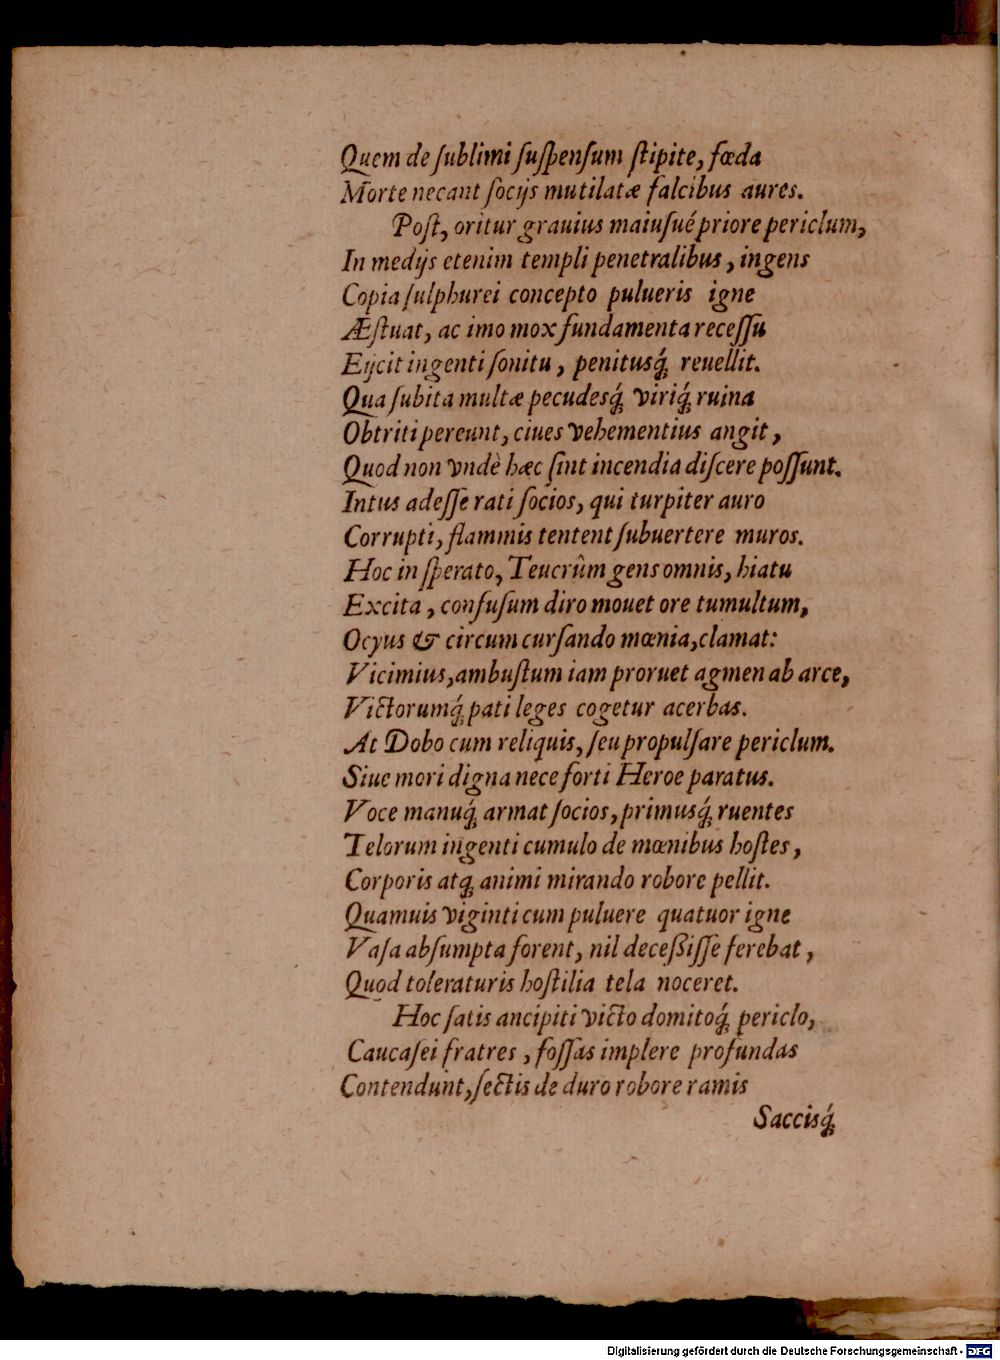 Quem de ſublimi ſuſpenſum ſtipite, fœda
Morte necant ſocijs mutilatæ falcibus aures.
Poſt, oritur grauius maiuſué priore periclum,
In medijs etenim templi penetralibus, ingens
Copia ſulphurei concepto pulueris igne
Æſtuat, ac imo mox fundamenta receſſu
Eijcit ingenti ſonitu, penitusq́; reuellit.
Qua ſubita multæ pecudesq́; viriq́; ruina
Obtriti pereunt, ciues vehementius angit,
Quod non vndè hæc ſint incendia diſcere poſſunt.
Intus adeſſe rati ſocios, qui turpiter auro
Corrupti, flammis tentent ſubuertere muros.
Hoc inſperato, Teucrûm gens omnis, hiatu
Excita, confuſum diro mouet ore tumultum,
Ocyus & circum curſando mœnia, clamat:
Vicimius, ambuſtum iam proruet agmen ab arce,
Victorumq́; pati leges cogetur acerbas.
At Dobo cum reliquis, ſeu propulſare periclum.
Siue mori digna nece forti Heroe paratus.
Voce manuq́; armat ſocios, primusq́; ruentes
Telorum ingenti cumulo de mœnibus hoſtes,
Corporis atq; animi mirando robore pellit.
Quamuis viginti cum puluere quatuor igne
Vaſa abſumpta forent, nil deceßiſſe ferebat,
Quod toleraturis hoſtilia tela noceret.
Hoc ſatis ancipiti victo domitoq́; periclo,
Caucaſei fratres, foſſas implere profundas
Contendunt, ſectis de duro robore ramis
Saccisq́;
Digitalisierung gefördert durch die Deutsche Forschungsgemeinschaft - DFG